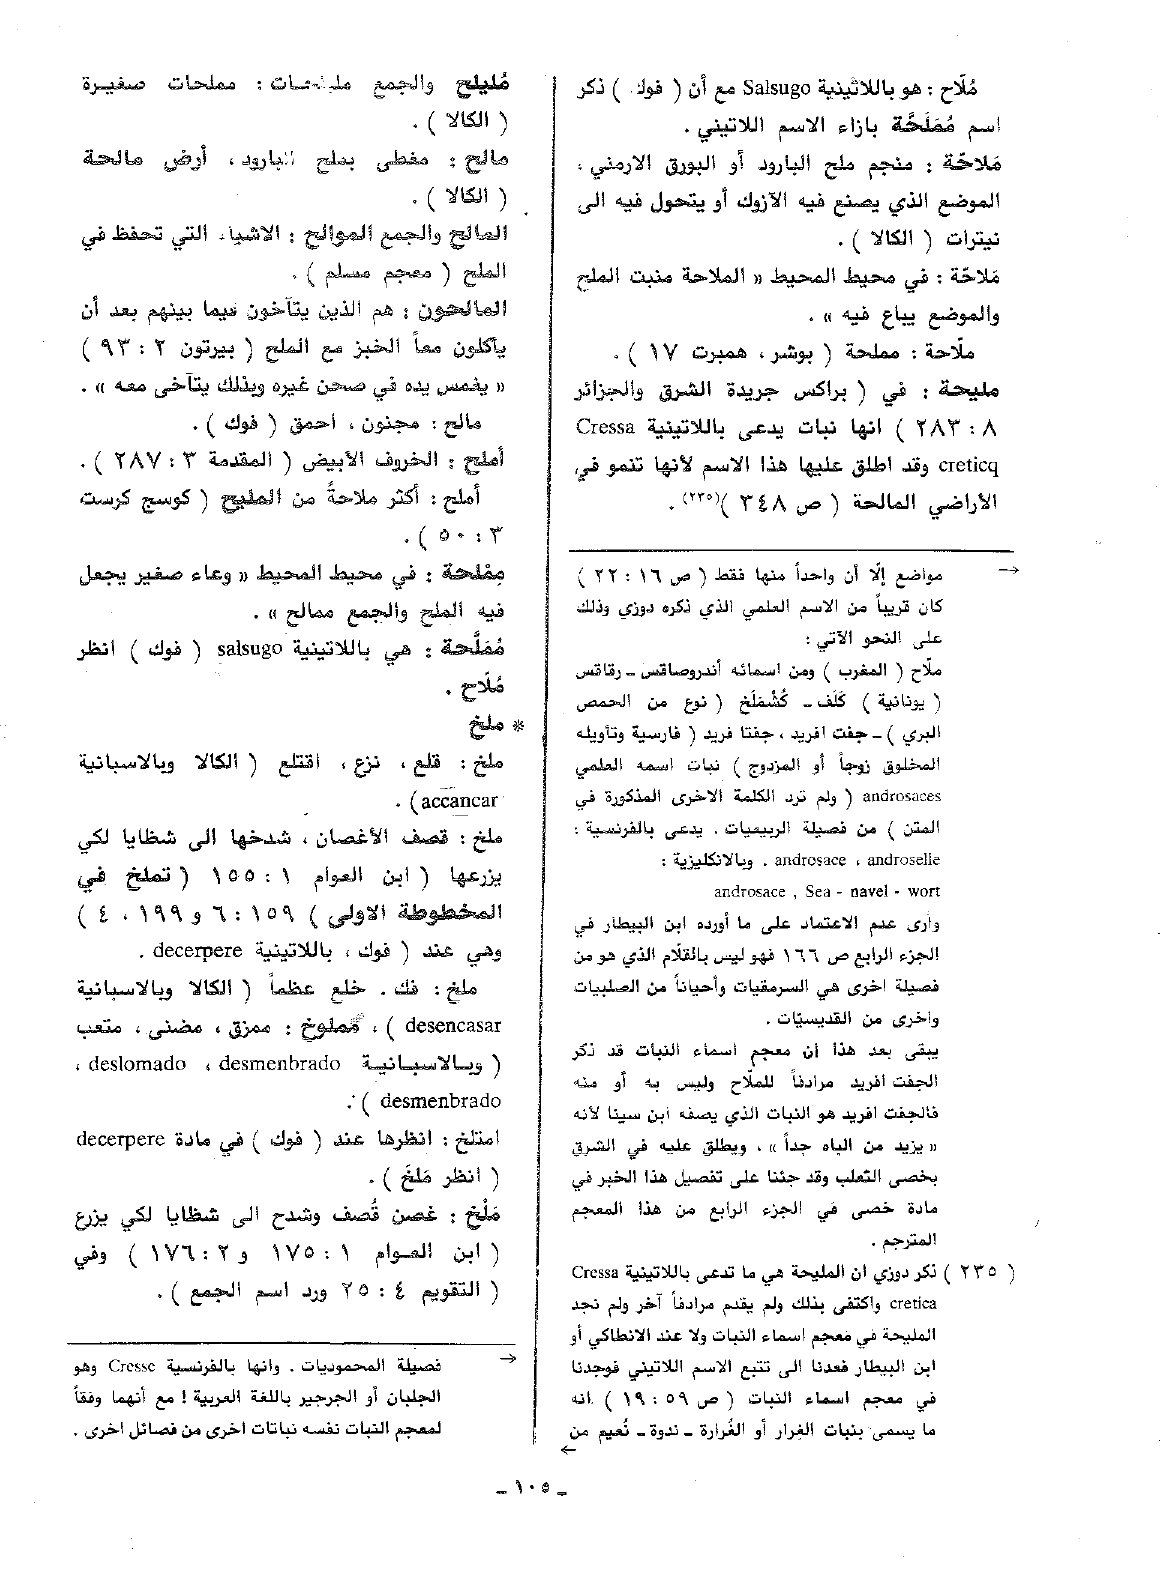 مُلّاح : هو باللاثينية Salsugo مع أن ( فوك ) ذكر
اسم مُمَلَحَّة بازاء الاسم اللاتيني .
مَلاحّة : منجم ملح البارود أو البورق الارمني ،
الموضع الذي يصنع فيه الآزوك أو يتحول فيه الى
نيترات ( الكالا ) .
مَلاحّة : في محيط المحيط « الملاحة منبت الملح
والموضع يباع فيه » .
ملّاحة : مملحة ( بوشر ، همبرت ١٧ ) .
مليحة : في ( براكس جريدة الشرق والجزائر
٨ : ٢٨٣ ) انها نبات يدعى باللاتينية Cressa
creticq وقد اطلق عليها هذا الاسم لأنها تنمو في
الأراضي المالحة ( ص ٣٤٨ )(٢٣٥) .
مواضع إلّا أن واحداً منها فقط ( ص ١٦ : ٢٢ )
كان قريباً من الاسم العلمي الذي ذكره دوزي وذلك
على النحو الآتي :
ملّاح ( المغرب ) ومن اسمائه أندروصاقس ـ رقاقس
( يونانية ) كَلَف ـ كُشْمَلَخ ( نوع من الحمص
البري ) ـ جفت افريد ، جفتا فريد ( فارسية وتأويله
المخلوق زوجاً أو المزدوج ) نبات اسمه العلمي
androsaces ( ولم ترد الكلمة الاخرى المذكورة في
المتن ) من فصيلة الربيعيات . يدعى بالفرنسية :
androsace ، androselle . وبالانكليزية :
androsace , Sea - navel - wort
وأرى عدم الاعتماد على ما أورده ابن البيطار في
الجزء الرابع ص ١٦٦ فهو ليس بالقلّام الذي هو من
فصيلة اخرى هي السرمقيات وأحياناً من الصلبيات
واخرى من القديسيّات .
يبقى بعد هذا أن معجم اسماء النبات قد ذكر
الجفت افريد مرادفاً للملّاح وليس به أو منه
فالجفت افريد هو النبات الذي يصفه ابن سينا لأنه
« يزيد من الباه جداً » . ويطلق عليه في الشرق
بخصى الثعلب وقد جئنا على تفصيل هذا الخبر في
مادة خصى في الجزء الرابع من هذا المعجم
المترجم .
( ٢٣٥ ) ذكر دوزي ان المليحة هي ما تدعى باللاتينية Cressa
cretica واكتفى بذلك ولم يقدم مرادفاً آخر ولم نجد
المليحة في معجم اسماء النبات ولا عند الانطاكي أو
ابن البيطار فعدنا الى تتبع الاسم اللاتيني فوجدنا
في معجم اسماء النبات ( ص ٥٩ : ١٩ ) انه
ما يسمى بنبات الغرار أو الغُرارة ـ ندوة ـ نُعيم من
مُليلح والجمع مليلحات : مملحات صغيرة
( الكالا ) .
مالح : مغطى بملح البارود ، أرض مالحة
( الكالا ) .
المالح والجمع الموالح : الاشياء التي تحفظ في
الملح ( معجم مسلم ) .
المالحون : هم الذين يتآخون فيما بينهم بعد أن
يأكلون معاً الخبز مع الملح ( بيرتون ٢ : ٩٣ )
« يغمس يده في صحن غيره وبذلك يتآخى معه » .
مالح : مجنون ، احمق ( فوك ) .
أملح : الخروف الأبيض ( المقدمة ٣ : ٢٨٧ ) .
أملح : أكثر ملاحةً من المليح ( كوسج كرست
٣ : ٥٠ ) .
مِمْلحة : في محيط المحيط « وعاء صغير يجعل
فيه الملح والجمع ممالح » .
مُمَلَّحة : هي باللاتينية salsugo ( فوك ) انظر
مُلّاح .
* ملخ
ملخ : قلع ، نزع ، اقتلع ( الكالا وبالاسبانية
accancar) .
ملخ : قصف الأغصان ، شدخها الى شظايا لكي
يزرعها ( ابن العوام ١ : ١٥٥ ( تملخ في
المخطوطة الاولى ) ١٥٩ : ٦ و ١٩٩ ، ٤ )
وهي عند ( فوك ، باللاتينية decerpere .
ملخ : فك . خلع عظماً ( الكالا وبالاسبانية
desencasar ) ، مملوخ : ممزق ، مضنى ، متعب
( وبالاسبانية deslomado ، desmenbrado ،
desmenbrado ) .
امتلخ : انظرها عند ( فوك ) في مادة decerpere
( انظر مَلخَ ) .
مَلْخ : غصن قُصف وشدح الى شظايا لكي يزرع
( ابن العوام ١ : ١٧٥ و ٢ : ١٧٦ ) وفي
( التقويم ٤ : ٢٥ ورد اسم الجمع ) .
فصيلة المحموديات . وانها بالفرنسية Cresse وهو
الجلبان أو الجرجير باللغة العربية ! مع أنهما وفقاً
لمعجم النبات نفسه نباتات اخرى من فصائل اخرى .
ـ ١٠٥ ـ